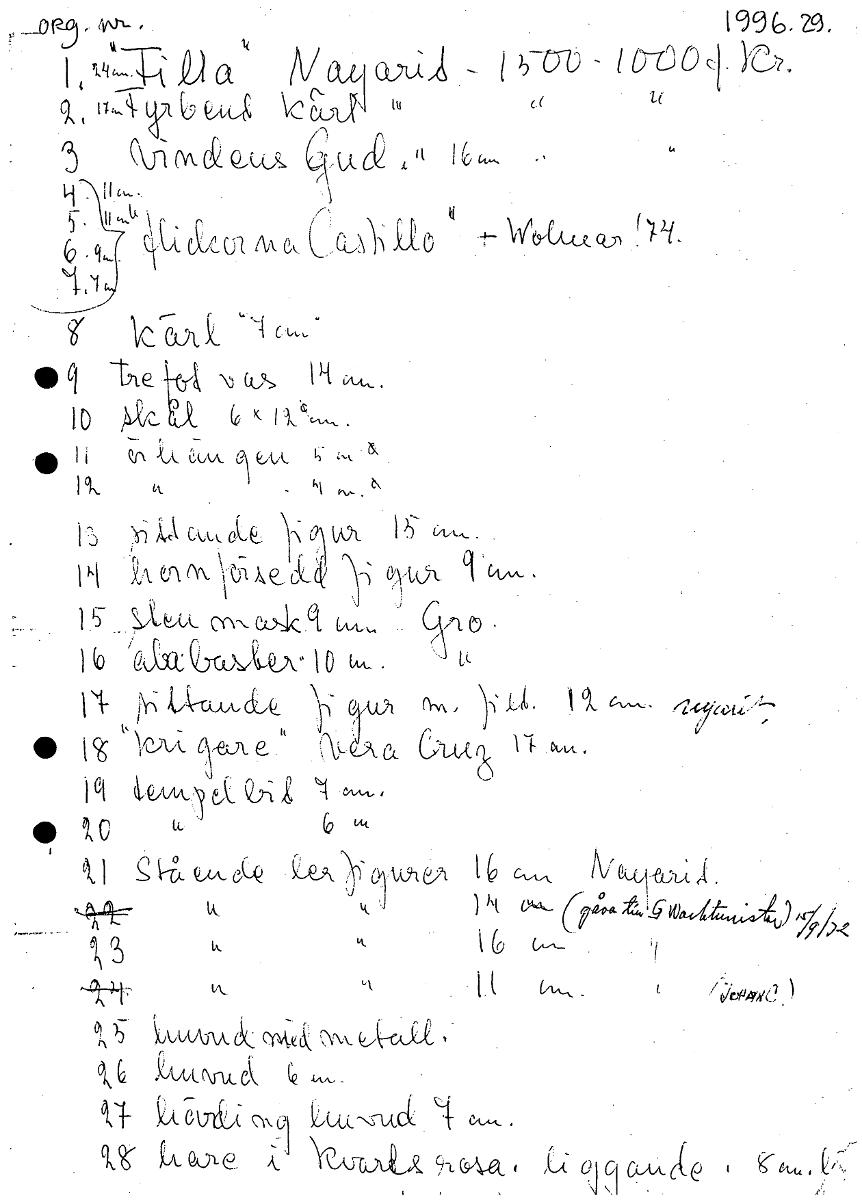 org. nr. 1996.29.
1. 24cm. "Filla" Nayarid - 1500 - 1000 f. Kr.
2. 17cm Fyrbent kärl " " "
3 Vindens Gud. " 16 cm " "
4. 11 cm.
5. 11 cm
6. 9cm "flickorna Castillo" + Wolmar '74.
7. 7cm
8 kärl "7 cm"
9 trefot vas 14 cm.
10 skål 6 x 12 cm.
11 örhängen 5 cm
12 " 4 cm.
13 sittande figur 15 cm.
14 hornförsedd figur 9 cm.
15 sten mask 9 cm Gro.
16 alabaster 10 cm. "
17 sittande figur m. fild. 12 cm. nayarit
18 "krigare" Vera Cruz 17 cm.
19 tempelbit 7 cm.
20 " 6 cm
21 Stående lerfigurer 16 cm Nayarid.
22 " " 14 cm (gåva till G Wachtmeister) 15/9/72
23 " " 16 cm "
24. " " 11 cm. " (JOHAN C.)
25 huvud med metall.
26 huvud 6 cm.
27 hövding huvud 7 cm.
28 hare i kvarts rosa. liggande. 8 cm.